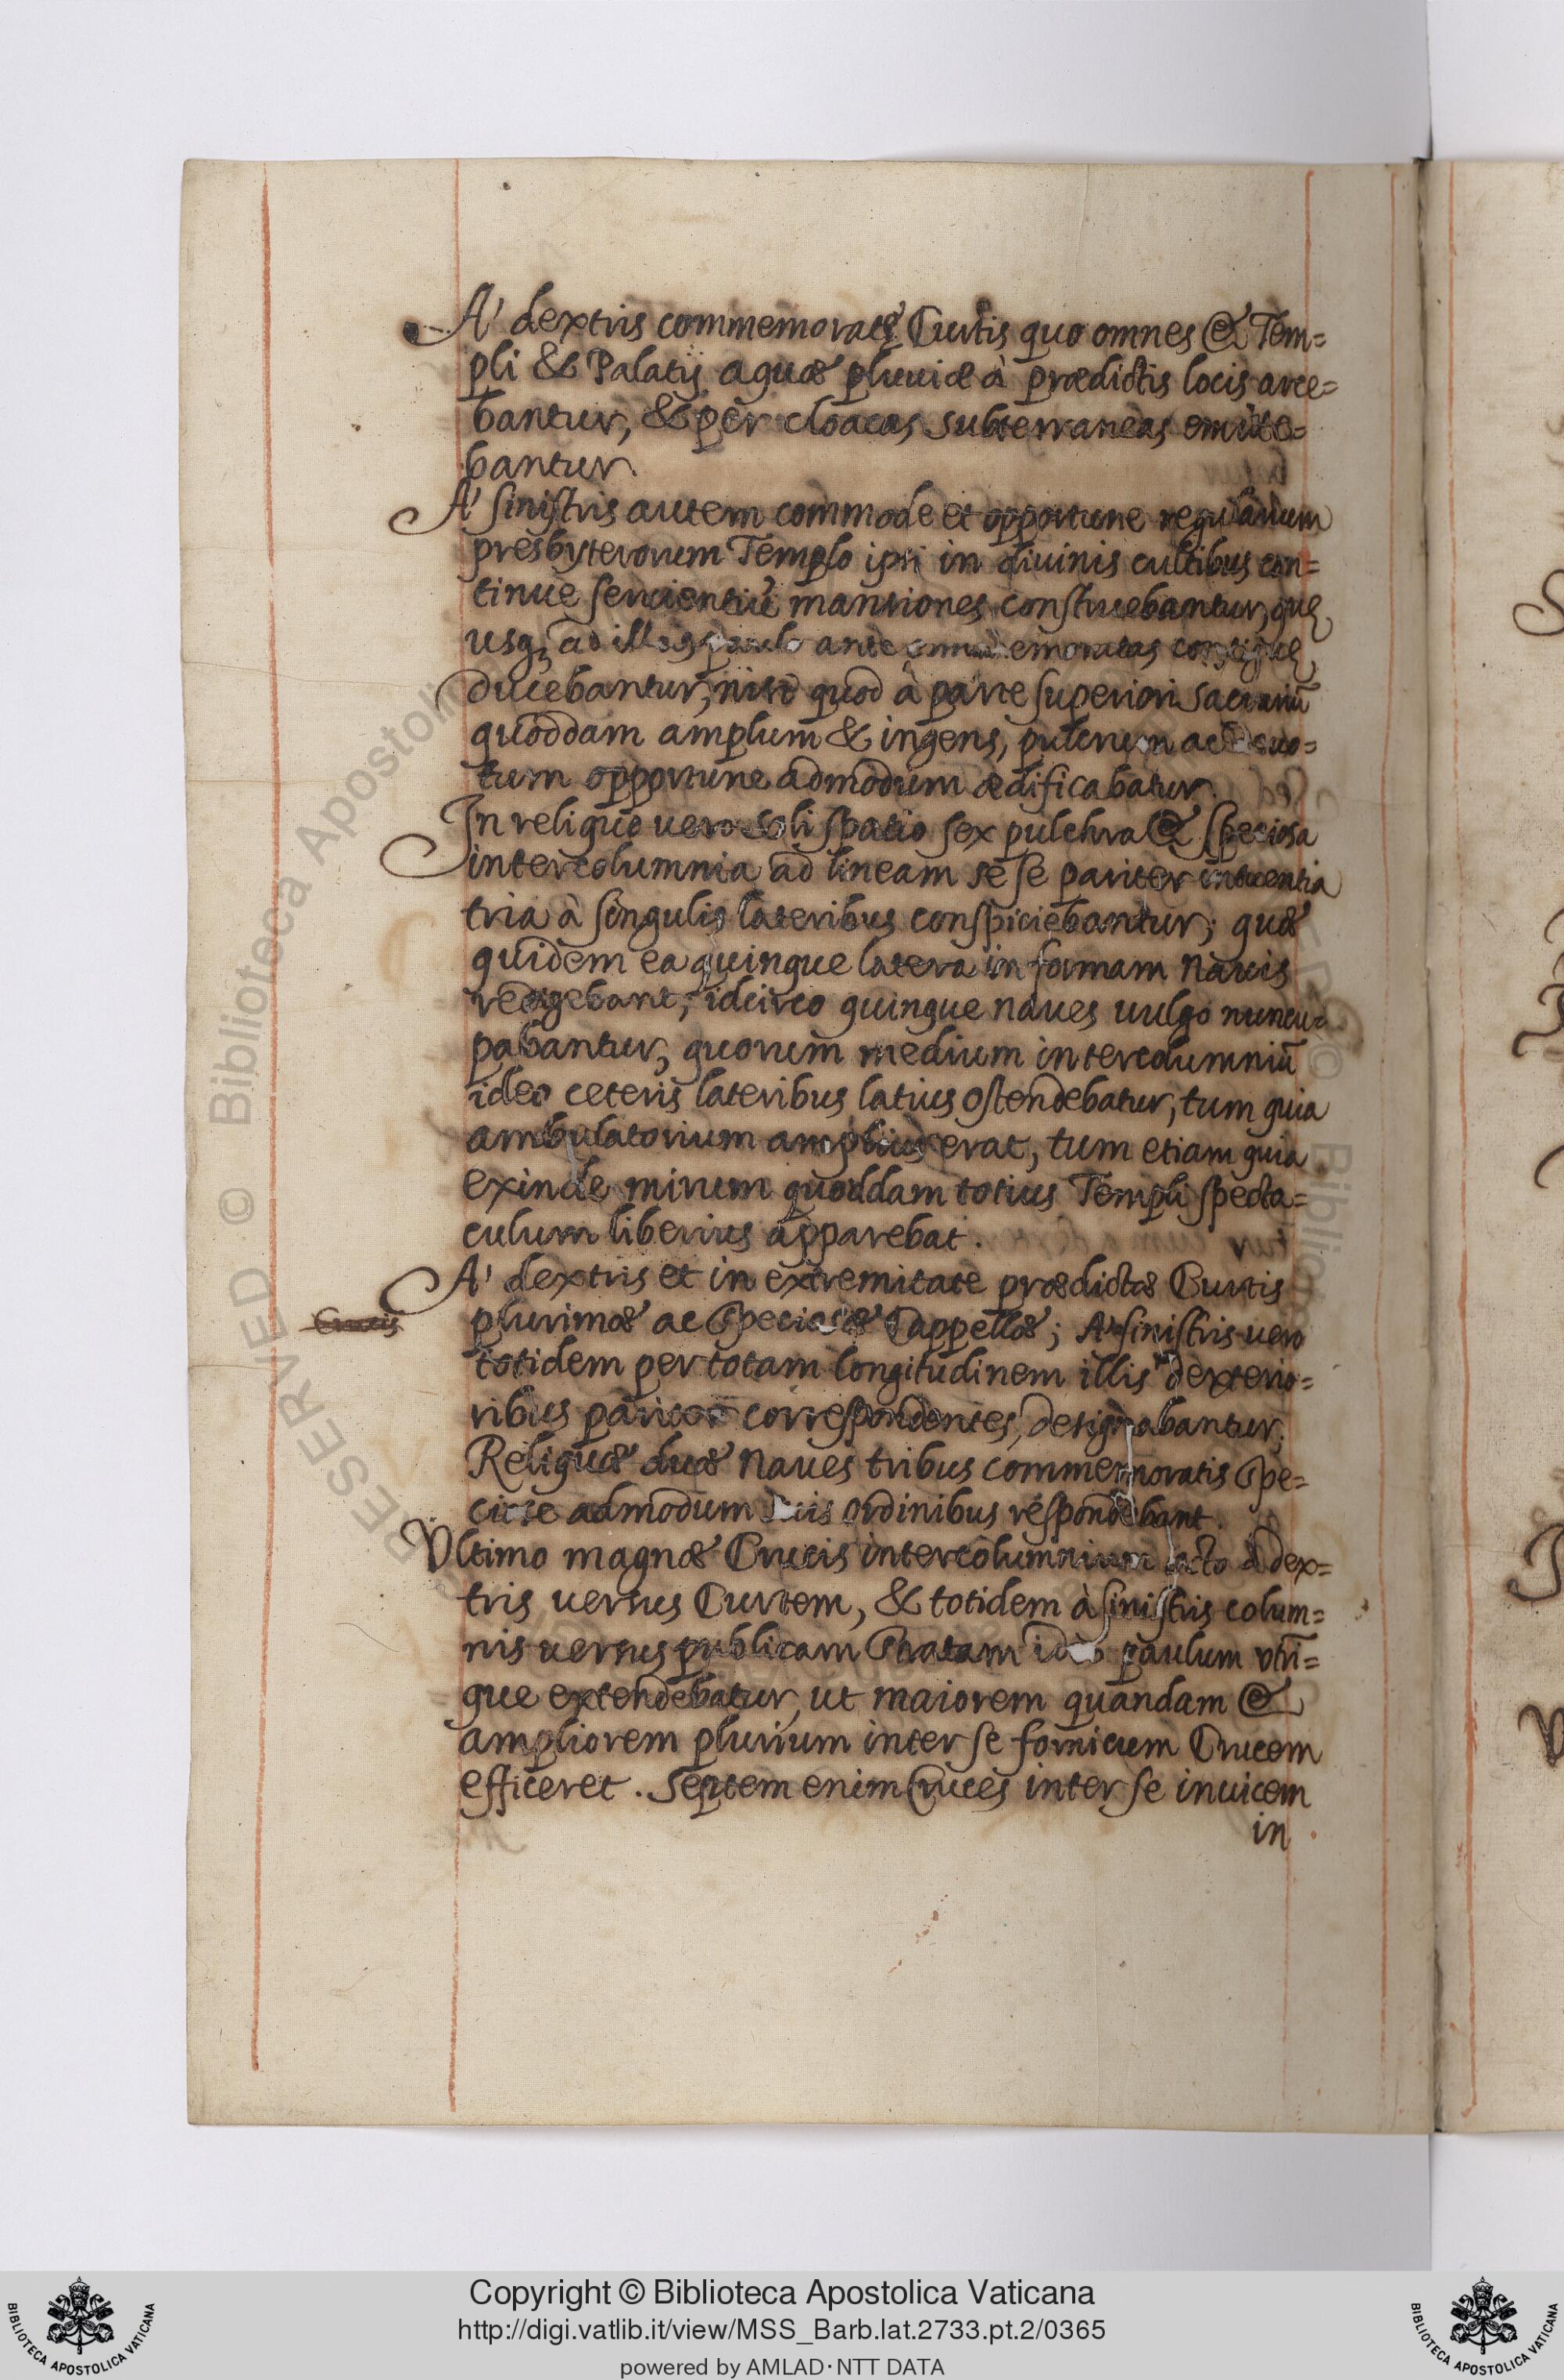 A' dextris commemoratę Curtis quo omnes & Tem=
pli & Palatij aquæ pluuiæ à prædictis locis arce=
bantur, & per cloacas subterraneas emitte=
bantur.
A' sinistris autem commode et opportune regularium
presbyterorum Templo ipsi in diuinis cultibus con=
tinue seruientiũ mansiones construebantur, quę
usq; ad illas paulo ante commemoratas contiguę
ducebantur, nisi quod à parte superiori sacrariũ
quoddam amplum & ingens, pulcrum ac deuo=
tum opportune admodum ædificabatur.
In reliquo uero soli spatio sex pulchra & speciosa
intercolumnia ad lineam sese pariter intuentia
tria à singulis lateribus conspiciebantur; quæ
quidem ea quinque latera in formam nauis
redigebant; idcirco quinque naues uulgo nuncu=
pabantur, quorum medium intercolumniũ
ideo ceteris lateribus latius ostendebatur, tum quia
ambulatorium amplius erat, tum etiam quia
exinde mirum quoddam totius Templi specta=
culum liberius apparebat.
A' dextris et in extremitate prædictæ Curtis
Crucis
plurimæ ac speciosæ Cappellæ; A' sinistris uero
totidem per totam longitudinem illis dexterio=
ribus pariter correspondentes, designabantur.
Reliquæ duæ naues tribus commemoratis spe=
ciose admodum suis ordinibus respondebant.
Vltimo magnæ Crucis intercolumnium octo à dex=
tris uersus Curtem, & totidem à sinistris colum=
nis uersus publicam Stratam ideo paulum utri=
que extendebatur, ut maiorem quandam &
ampliorem plurium inter se fornicum Crucem
efficeret. Septem enim Cruces inter se inuicem
in
RESERVED © Biblioteca Apostolica
© Biblio
Copyright © Biblioteca Apostolica Vaticana
http://digi.vatlib.it/view/MSS_Barb.lat.2733.pt.2/0365
powered by AMLAD·NTT DATA
BIBLIOTECA APOSTOLICA VATICANA
BIBLIOTECA APOSTOLICA VATICANA